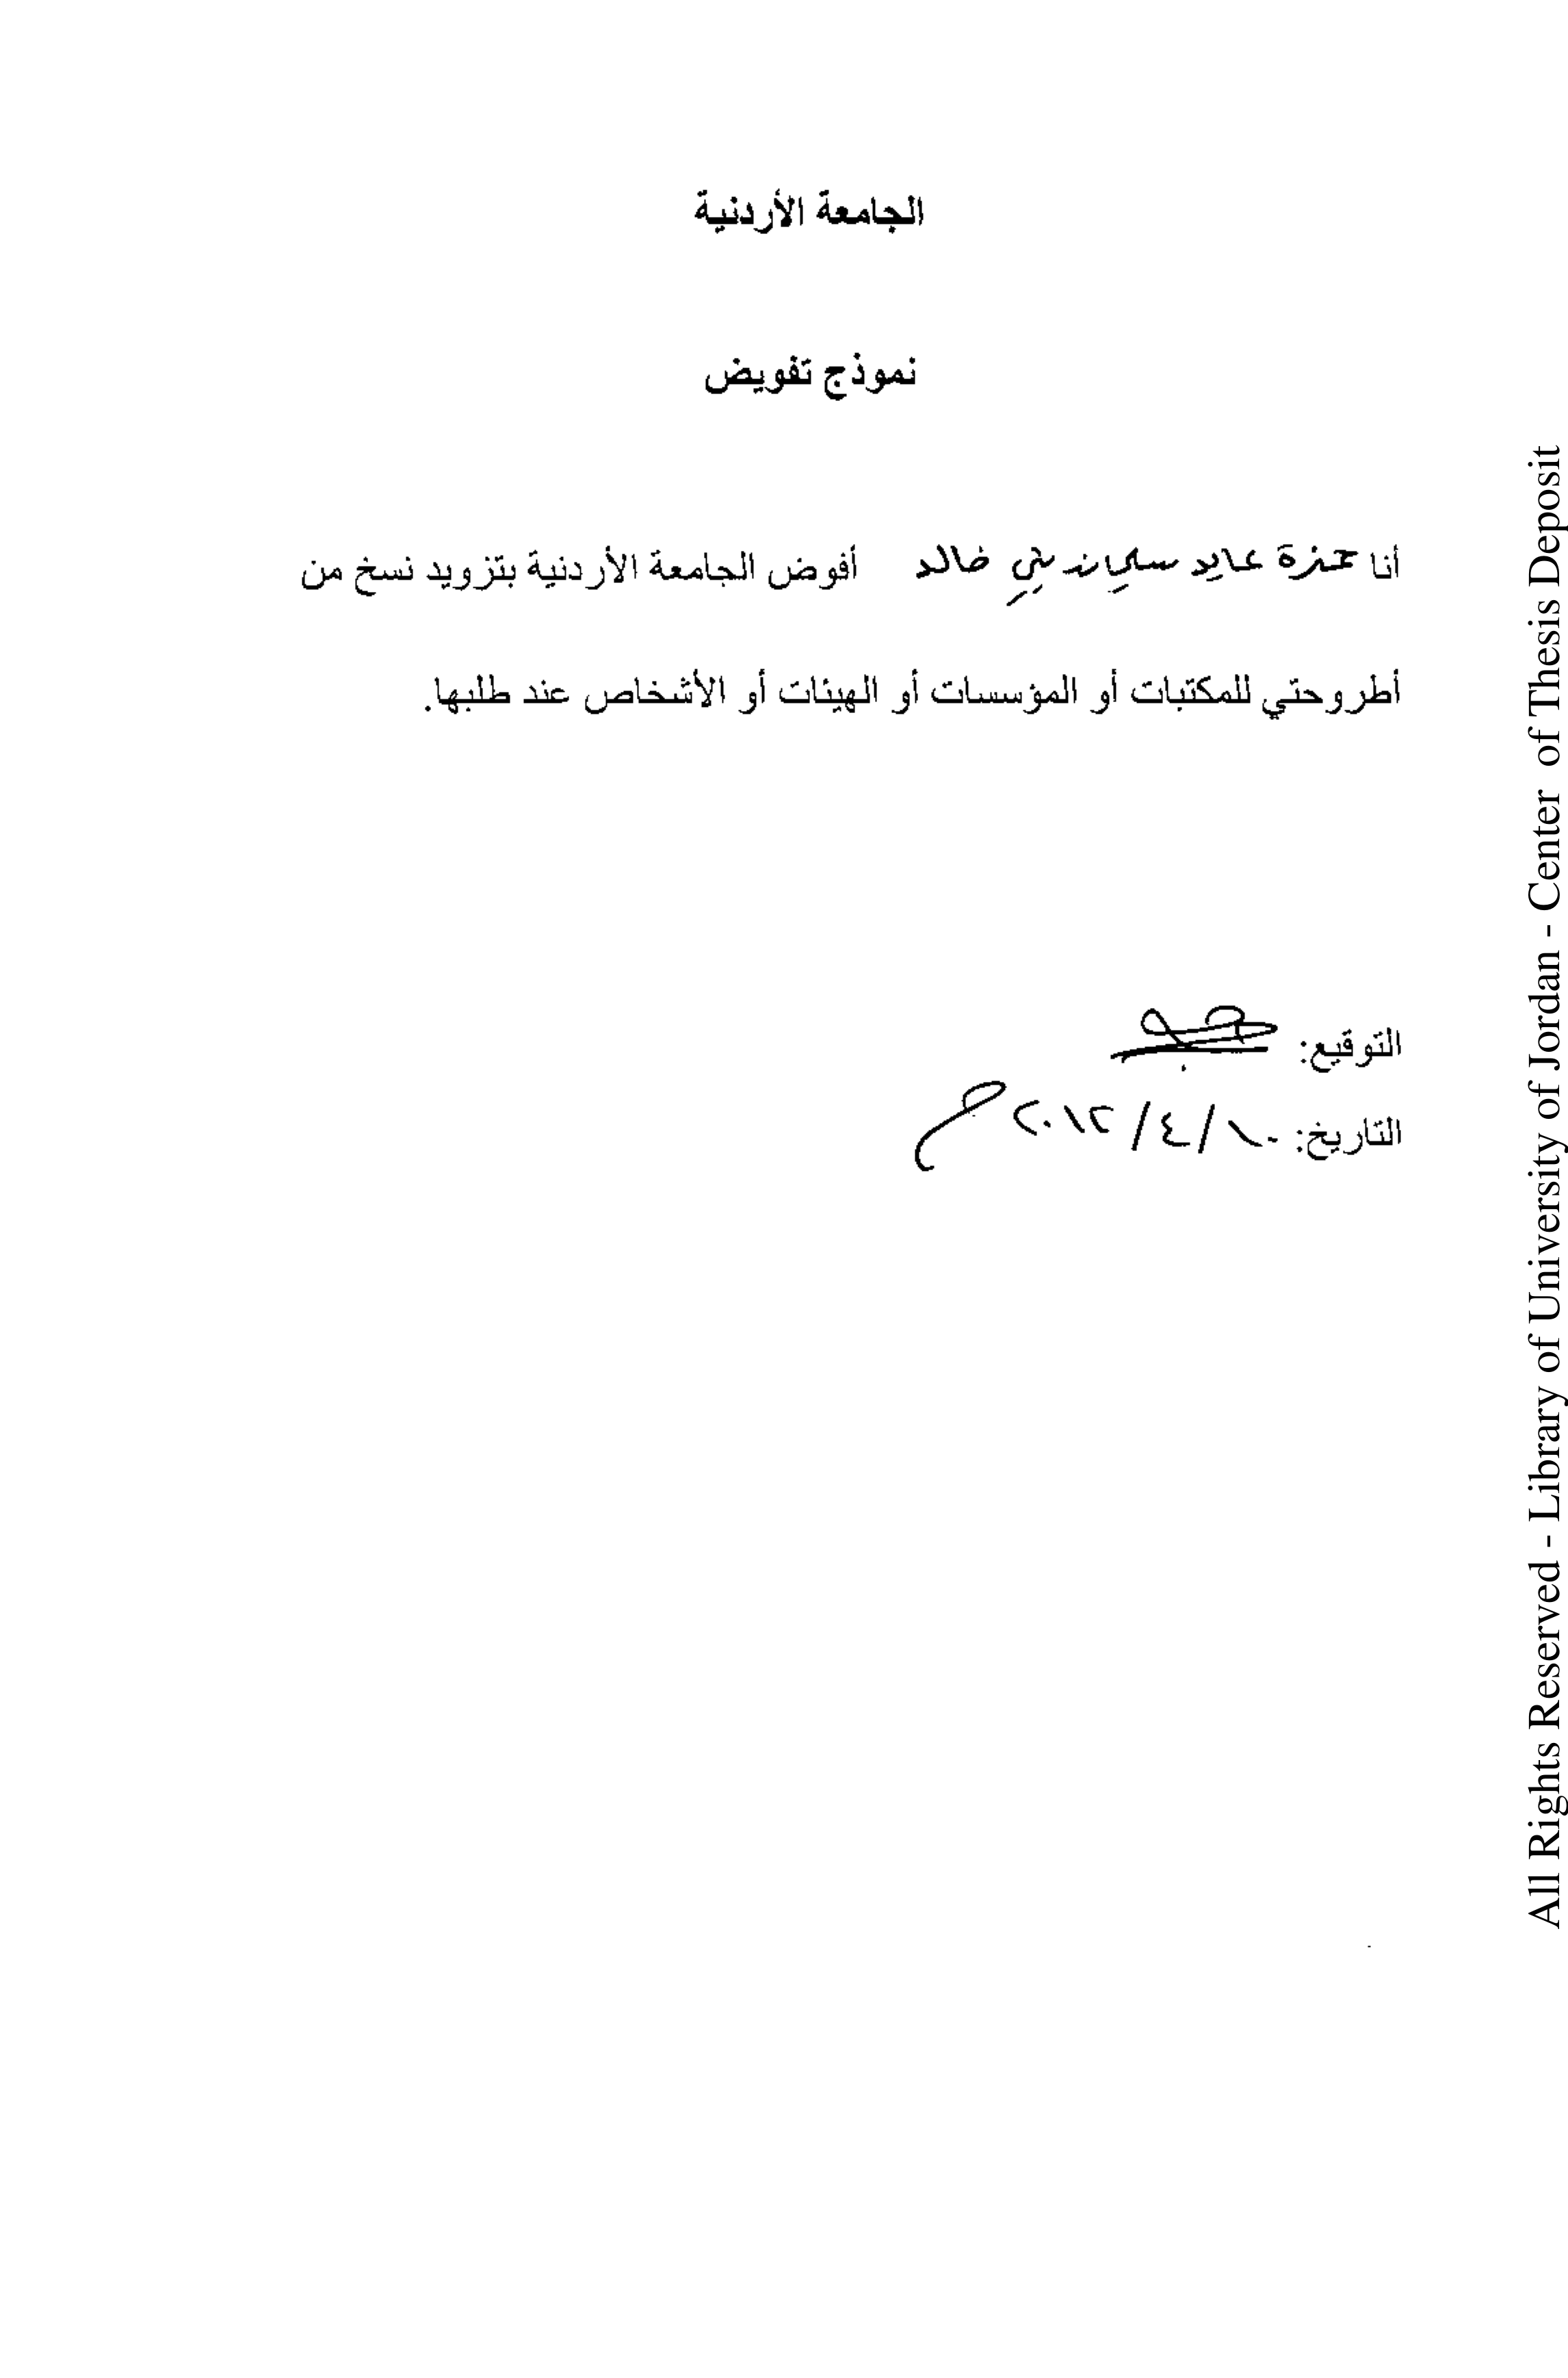 الجامعة الأردنية
نموذج تفويض
أنا حمزة عايد سليمان بني خالد أفوض الجامعة الأردنية بتزويد نسخ من
أطروحتي للمكتبات أو المؤسسات أو الهيئات أو الأشخاص عند طلبها.
التوقيع:
التاريخ: ١٠/٤/٢٠١٢م
All Rights Reserved - Library of University of Jordan - Center of Thesis Deposit